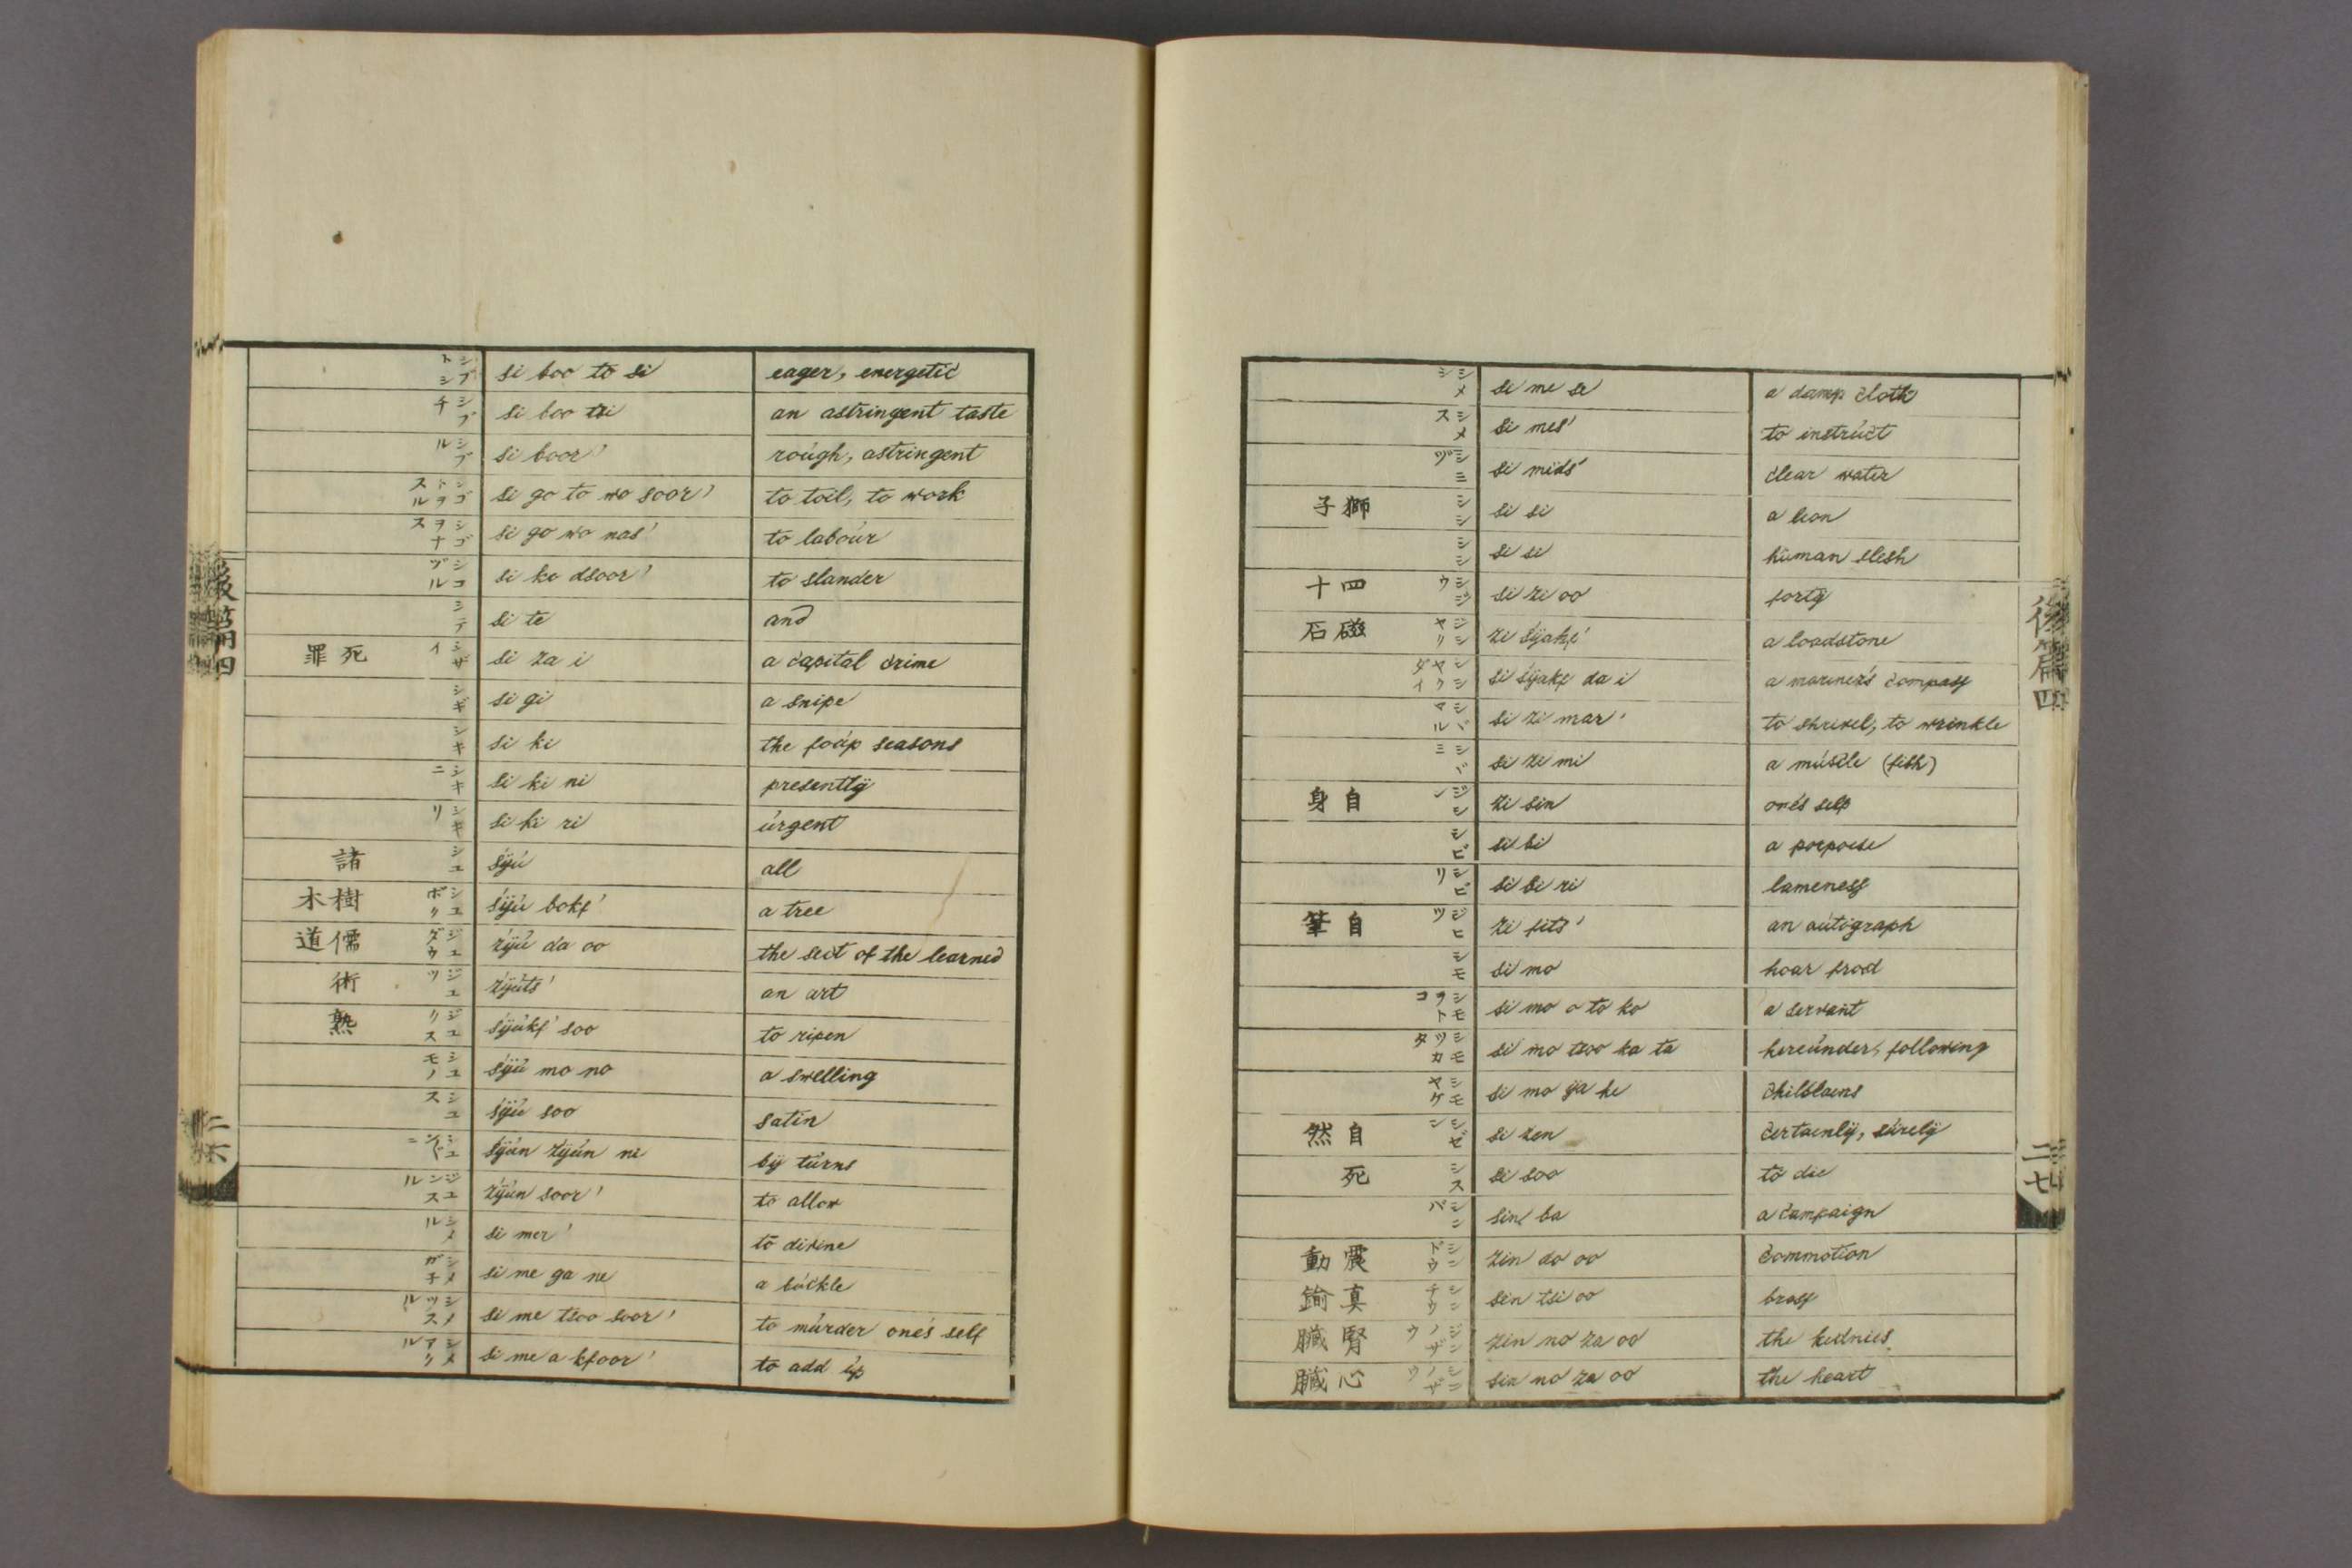 シブトシ si boo to si eager, energetic
シブチ si boo tsi an astringent taste
シブル si boor' roúgh, astringent
シゴトヲスル si go to wo soor' to toil, to work
シゴヲナス si go wo nas' to laboúr
シコヅル si ko dsoor' to slander
シテ si te and
死罪 シザイ si za i a capital crime
シギ si gi a snipe
シキ si ki the foúr seasons
シキニ si ki ni presentlÿ
シキリ si ki ri úrgent
諸 シユ sÿú all
樹木 シユボク sÿú bokf' a tree
儒道 ジユダウ zÿú da oo the sect of the learned
術 ジユツ zÿúts' an art
熟 ジユクス sÿúkf' soo to ripen
シユモノ sÿú mo no a swelling
シユス sÿú soo satin
sÿún zÿún ni bÿ túrns
ジユンスル zÿún soor' to allow
シメル si mer' to divine
シメガネ si me ga ne a búckle
シメツスル si me tsoo soor' to múrder one's self
シメアクル si me a kfoor' to add úp
後篇四
シメシ si me si a damp cloth
シメス si mes' to instrúct
シミヅ si mids' clear water
獅子 シシ si si a lion
シシ si si húman flesh
四十 シジウ si zi oo fortÿ
磁石 ジシヤク zi sÿakf' a loadstone
シシヤクダイ si sÿakf da i a mariner's compass
シヾマル si zi mar' to shrivel, to wrinkle
シヾミ si zi mi a múscle (fish)
自身 ジシン zi sin one's self
シビ si bi a porpoise
シビリ si bi ri lameness
自筆 ジヒツ zi fits' an aútograph
シモ si mo hoar frost
シモヲトコ si mo o to ko a servant
シモツカタ si mo tsoo ka ta hereúnder, following
シモヤケ si mo ÿa ke chilblains
自然 シゼン si zen certainlÿ, súrelÿ
死 シス si soo to die
シンバ sin ba a campaign
震動 シンドウ zin do oo commotion
真鍮 シンチウ sin tsi oo brass
腎臓 ジンノザウ zin no za oo the kidnies
心臓 シンノザウ sin no za oo the heart
後篇四
二七